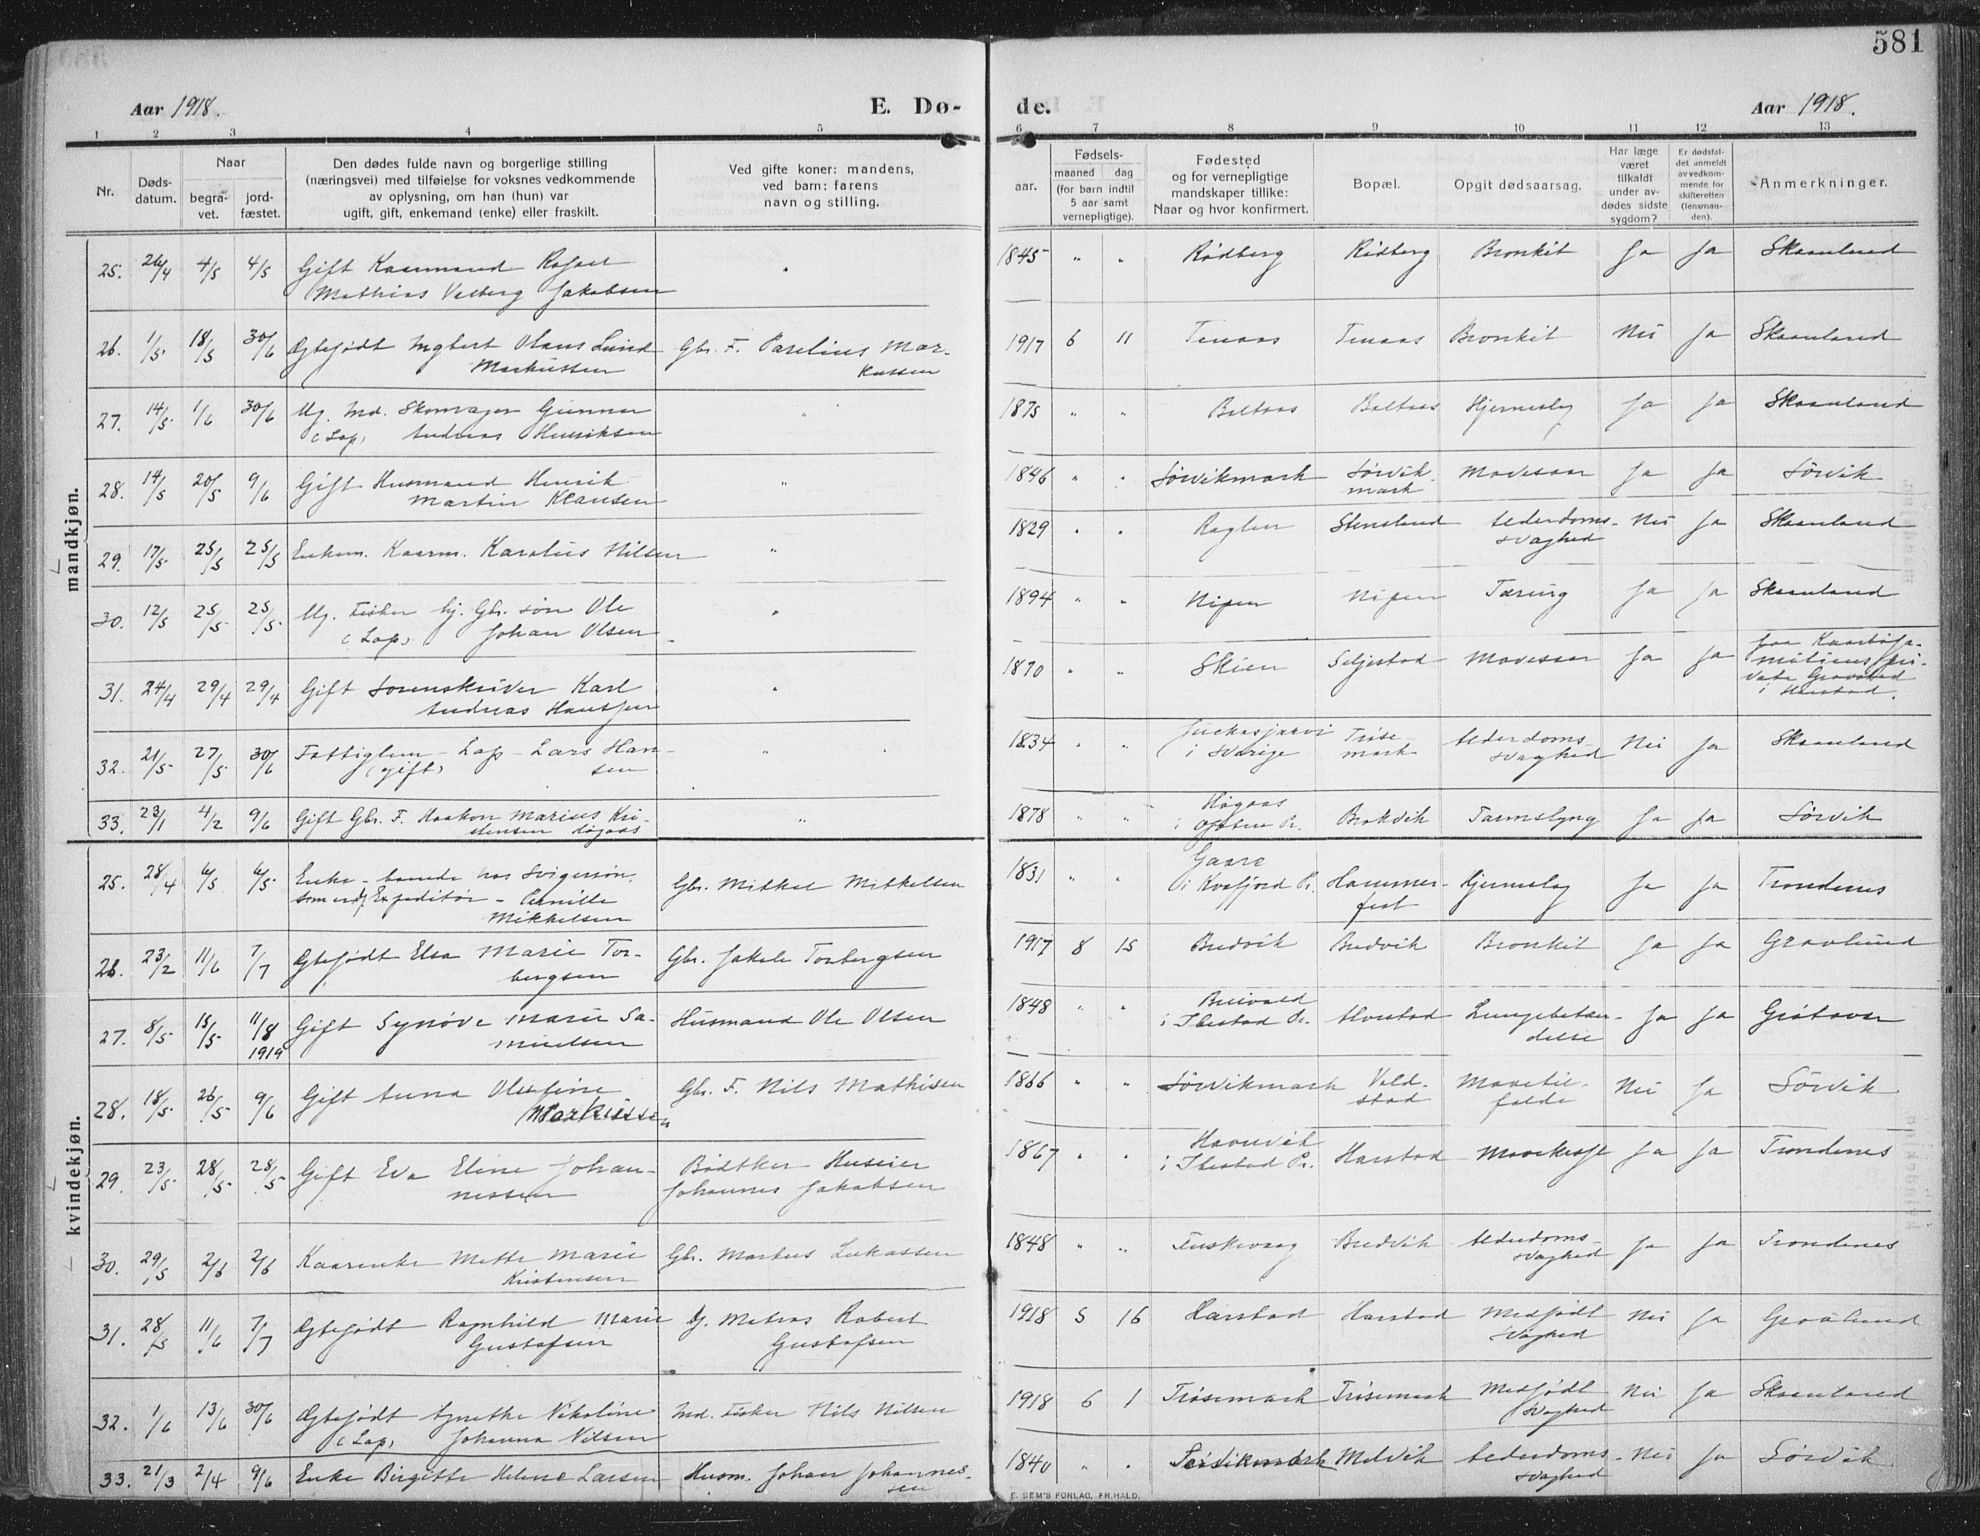 581
Aar 1918.
E. Dø-
de.
Aar 1918.
1 2 3 4 5 6 7 8 9 10 11 12 13
Nr.
Døds-
datum.
Naar
begra-
vet.
jord-
fæstet.
Den dødes fulde navn og borgerlige stilling
(næringsvei) med tilføielse for voksnes vedkommende
av oplysning, om han (hun) var
ugift, gift, enkemand (enke) eller fraskilt.
Ved gifte koner: mandens,
ved barn: farens
navn og stilling.
Fødsels-
aar.
maaned dag
(for barn indtil
5 aar samt
vernepligtige).
Fødested
og for vernepligtige
mandskaper tillike:
Naar og hvor konfirmert.
Bopæl.
Opgit dødsaarsag.
Har læge
været
tilkaldt
under av-
dødes sidste
sygdom?
Er dødsfal-
det anmeldt
av vedkom-
mende for
skifteretten
(lensman-
den).
Anmerkninger.
mandkjøn.
25. 26/4 4/5 4/5 Gift Kaarmand Rafael
Mathias Valberg Jakobsen
1845 " " Rødberg Rødberg Bronkit Ja Ja Skaanland
26. 1/5 18/5 30/6 Ægtefødt Ingbert Olaus Lund
Markussen
Gbr. F. Parelius Mar-
kussen
1917 6 11 Tenaas Tenaas Bronkit Nei Ja Skaanland
27. 14/5 1/6 30/6 Ug. Md. Skomager Gunnar
(Lap) Andreas Henriksen
1875 " " Boltaas Boltaas Hjerneslag Ja Ja Skaanland
28. 14/5 20/5 9/6 Gift Husmand Henrik
Martin Klausen "
1846 " " Sørvikmark Sørvik-
mark
Mavesaar Ja Ja Sørvik
29. 17/5 25/5 25/5 Enkem. Kaarm. Karolus Nilsen "
1829 " " Stensland Alderdoms-
svaghed
Nei Ja Skaanland
30. 12/5 25/5 25/5 Ug. Fisker hj. Gbr. søn Ole
(Lap) Johan Olsen "
1894 " " Nipen Nipen Tæring Ja Ja Skaanland
31. 24/4 29/4 29/4 Gift Sorenskriver Karl
Andreas Hanssen "
1870 " " Skien Seljestad Mavesaar Ja Ja paa Kaarbøfa-
miliens pri-
vate Gravsted
i Harstad.
32. 21/5 27/5 30/6 Fattiglem - Lap - Lars Han-
(gift) sen "
1834 " " Juckasjærvi
i Sverige
Trøse-
mark
Alderdoms-
svaghed
Nei Ja Skaanland
33. 23/1 4/2 9/6 Gift Gbr. F. Haakon Marius Kri-
stensen Høgaas "
1878 " " Høgaas
i Ofoten Pr.
Brokvik Tarmslyng Ja Ja Sørvik
kvindekjøn.
25. 28/4 6/5 6/5 Enke - boende hos Svigersøn,
som er Expeditør - Pernille
Mikkelsen
Gbr. Mikkel Mikkelsen
1831 " " Gaare
i Kvæfjord Pr.
Hammer-
fest
Hjerneslag Ja Ja Trondenes
26. 23/2 11/6 7/7 Ægtefødt Elsa Marie Tor-
bergsen
Gbr. Jakob Torbergsen
1917 8 15 Bredvik Bredvik Bronkit Ja Ja Gravlund
27. 8/5 15/5 11/8
1919
Gift Synøve Marie Sa-
muelsen
Husmand Ole Olsen
1848 " "
i Ibestad Pr.
Lungebetæn-
delse
Ja Ja Grøtavær
28. 18/5 26/5 9/6 Gift Anna Olufine
Markussen
Gbr. F. Nils Mathisen
1866 " " Sørvikmark Vold-
stad
Mavetil-
fælde
Nei Ja Sørvik
29. 23/5 28/5 28/5 Gift Eva Eline Johan-
nessen
Bødtker Huseier
Johannes Jakobsen
1867 " " Havnvik
i Ibestad Pr.
Harstad Mavekræft Ja Ja Trondenes
30. 29/5 2/6 2/6 Kaarenke Mette Marie
Kristensen
Gbr. Markus Lukassen
1848 " " Fuskevaag Bredvik Alderdoms-
svaghed
Ja Ja Trondenes
31. 28/5 11/6 7/7 Ægtefødt Ragnhild Marie
Gustafsen
Ug. Matros Robert
Gustafsen
1918 5 16 Harstad Harstad Medfødt
svaghed
Nei Ja Gravlund
32. 1/6 13/6 30/6 Ægtefødt Agnethe Nikoline
(Lap) Johanna Nilsen
Md. Fisker Nils Nilsen
1918 6 1 Trøsemark Trøsemark Medfødt
svaghed
Nei Ja Skaanland
33. 21/3 2/4 9/6 Enke Birgitte Helene Larsen Husm. Johan Johannes-
sen
1840 " " Sørvikmark Melvik Alderdoms-
svaghed
Nei Ja Sørvik
E. SEM'S FORLAG, FR.HALD.